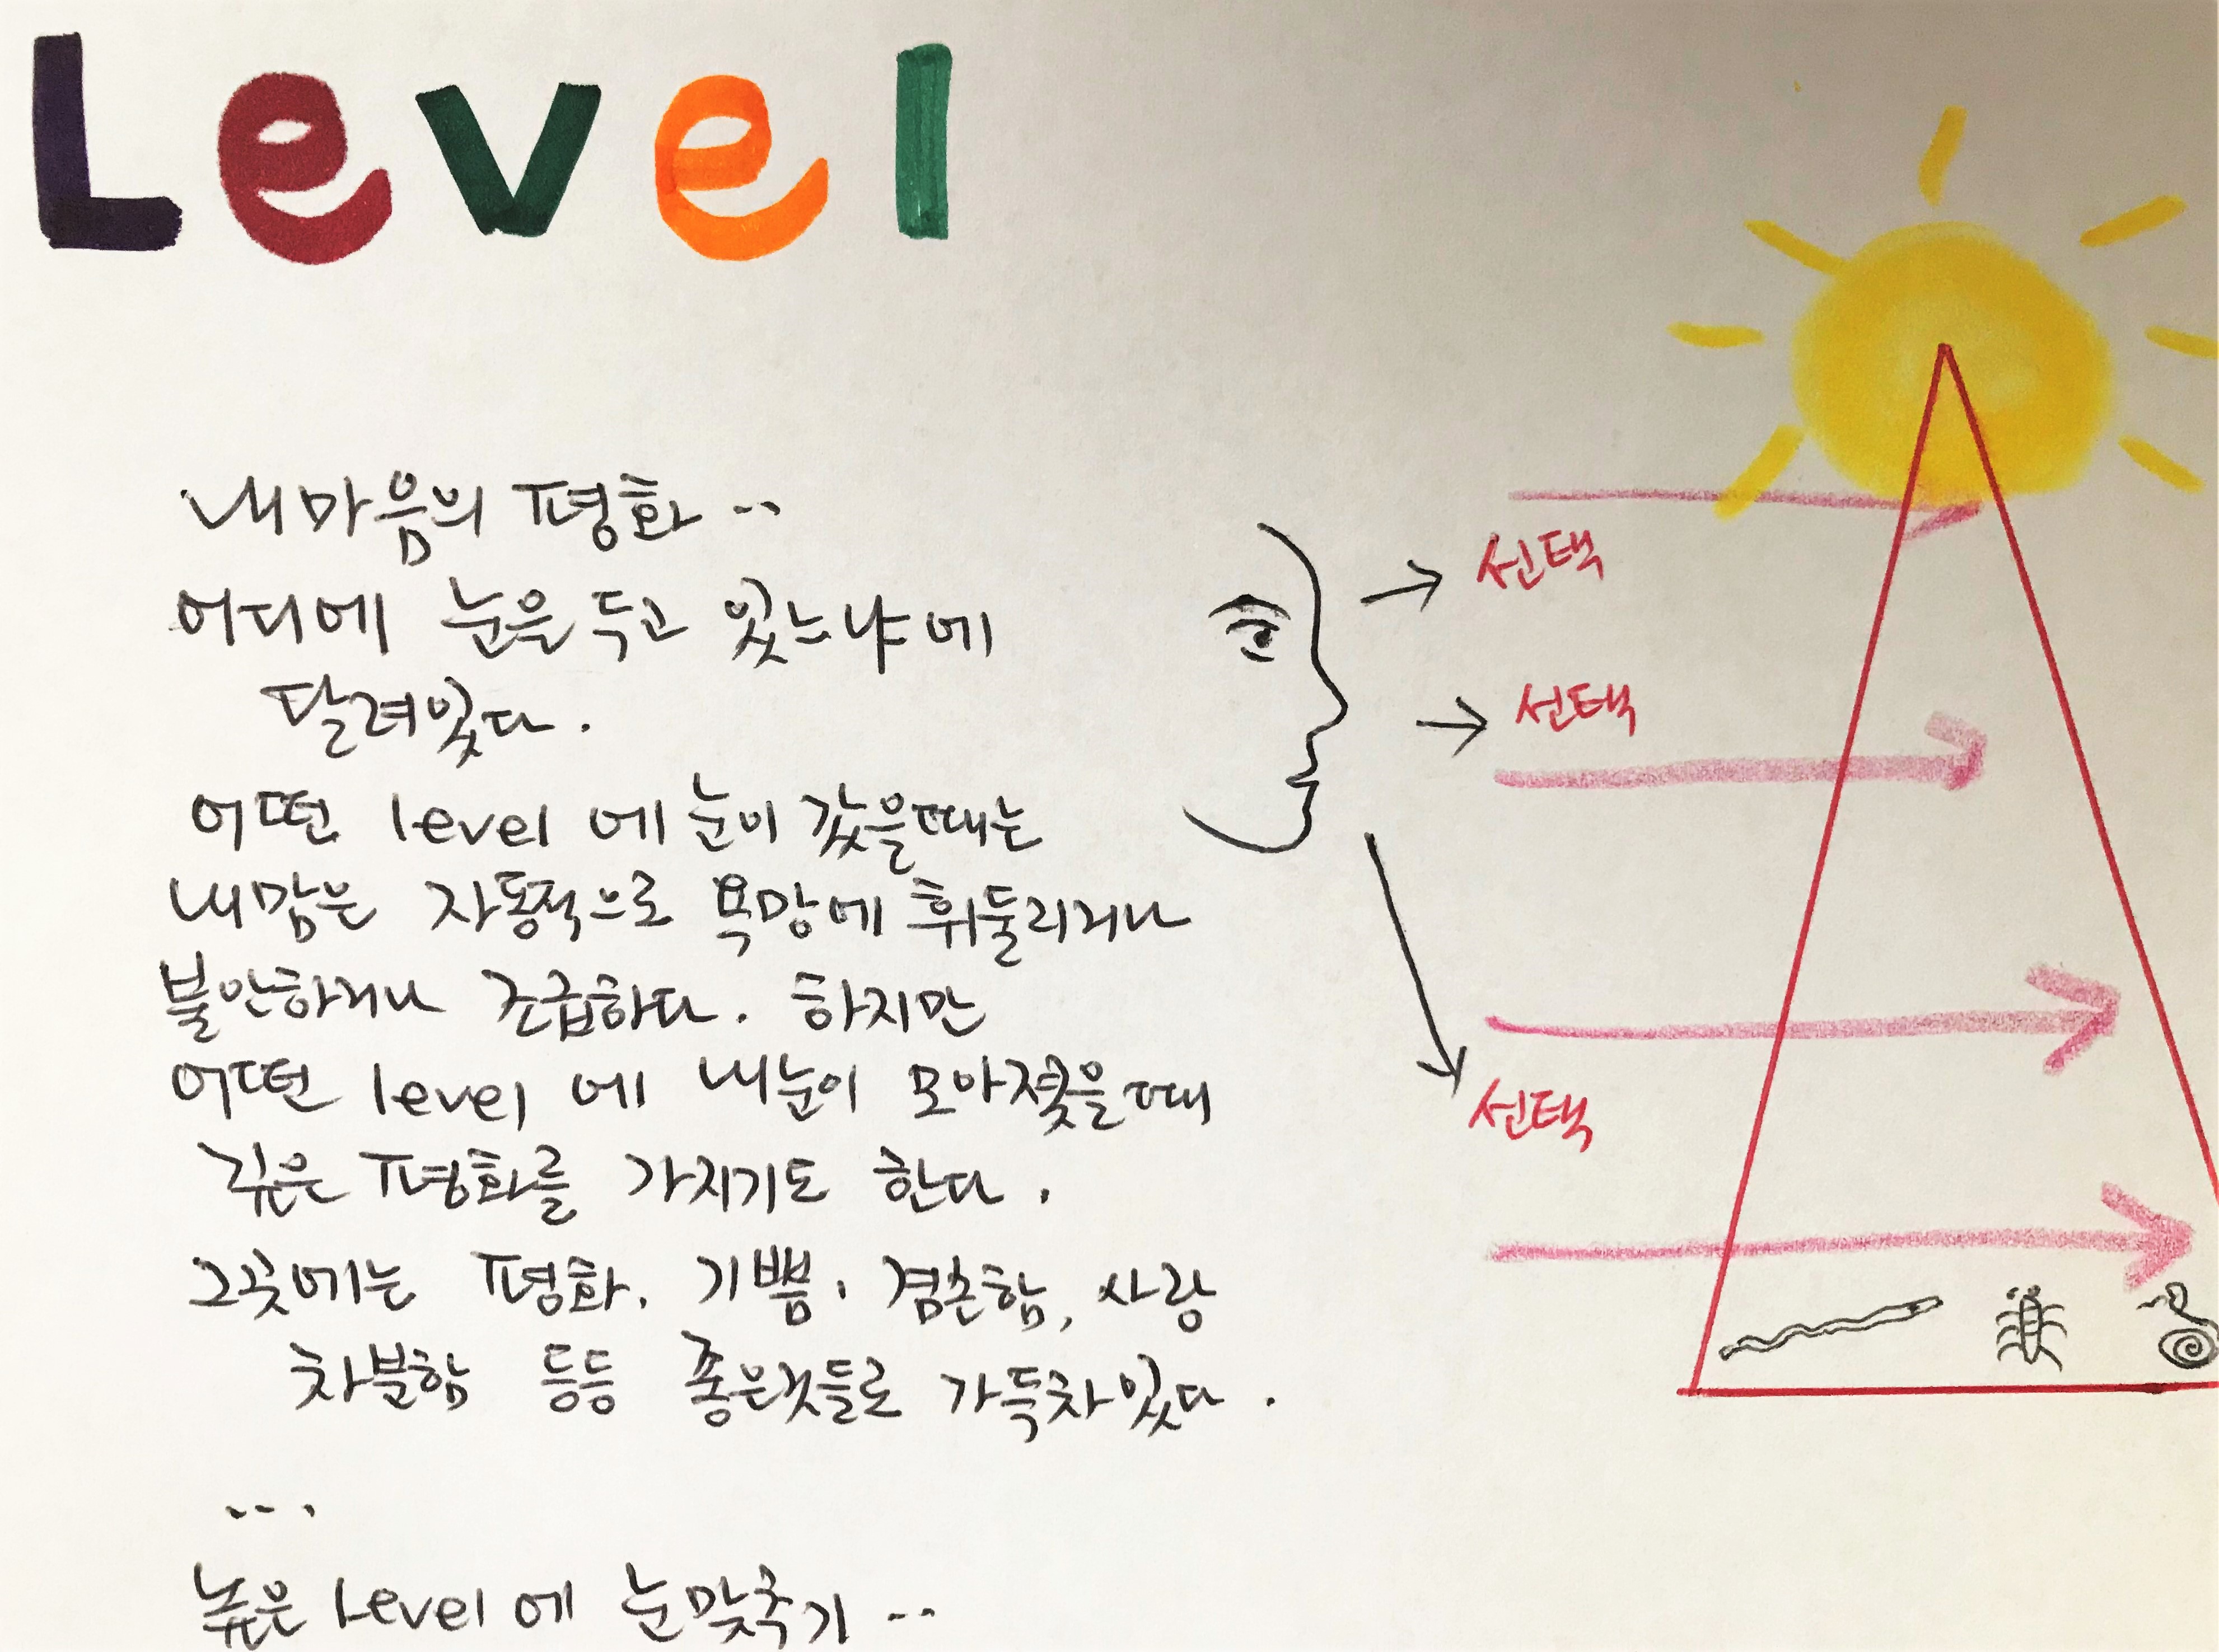 Level
내마음의 평화..
어디에 눈을 두고 있느냐에
달려있다.
어떤 level 에 눈이 갔을때는
내맘은 자동적으로 욕망에 휘둘리거나
불안하거나 조급하다. 하지만
어떤 level 에 내눈이 모아졌을때
깊은 평화를 가지기도 한다.
그곳에는 평화, 기쁨, 겸손함, 사랑
차분함 등등 좋은것들로 가득차있다.
...
높은 Level 에 눈맞추기..
선택
선택
선택